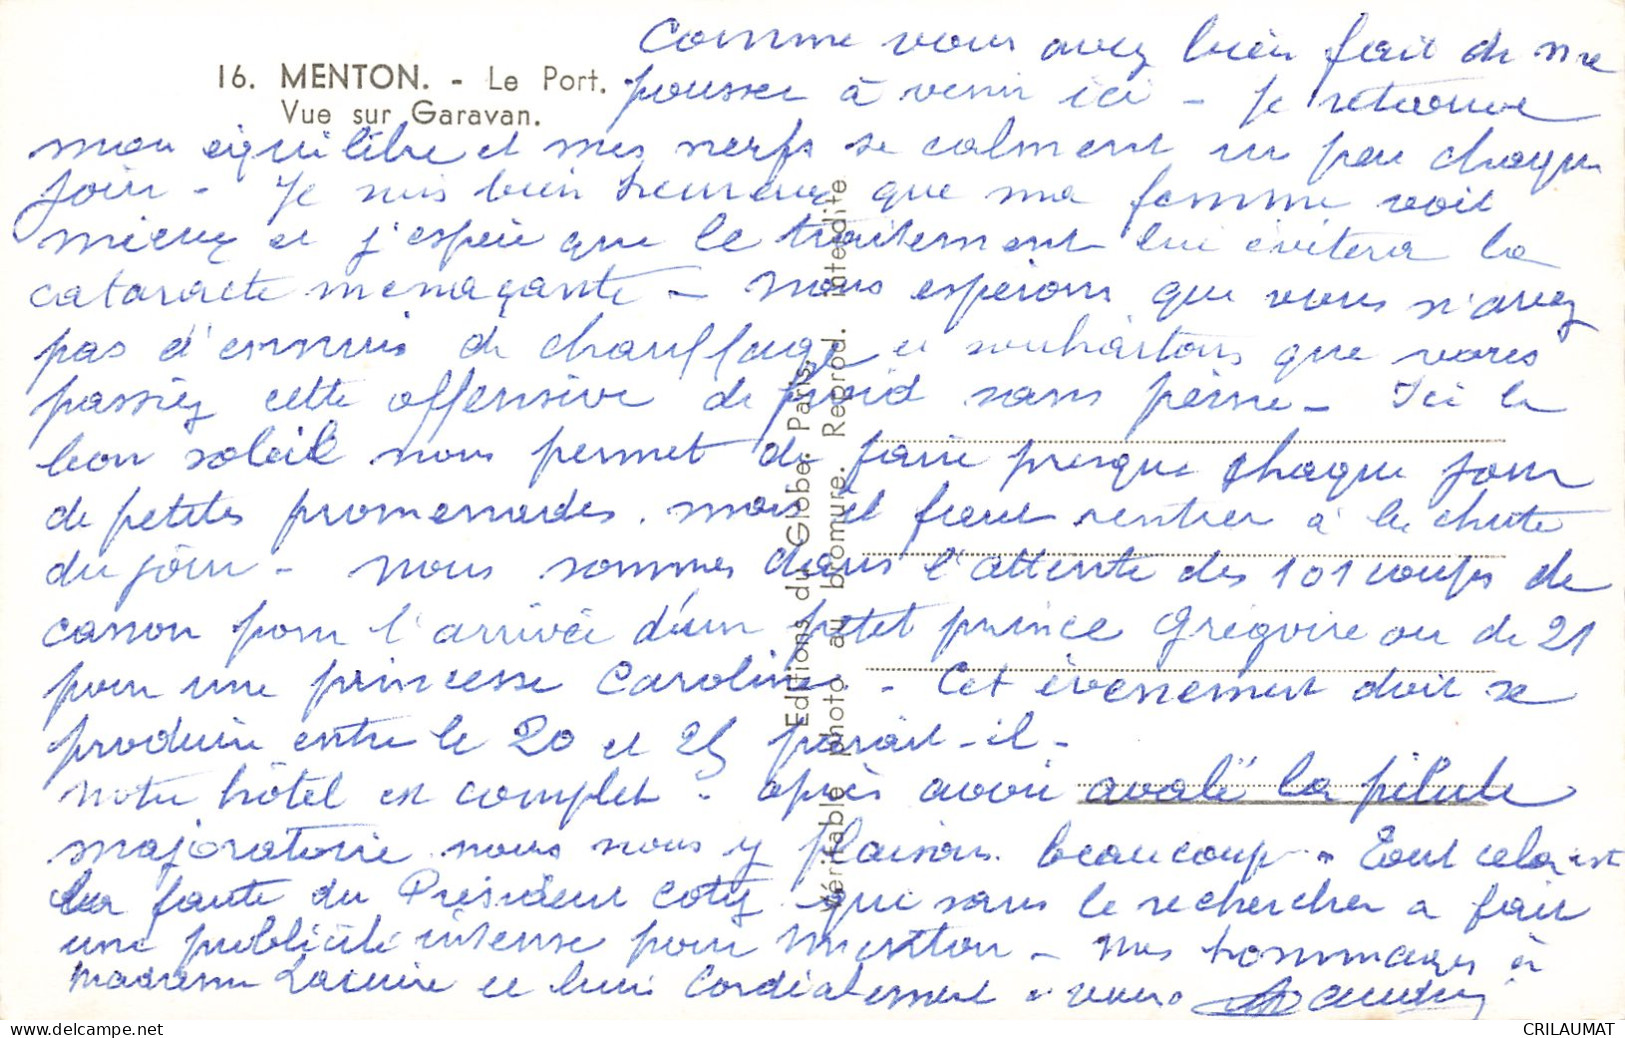 16. MENTON. - Le Port.
Vue sur Garavan.
Comme vous avez bien fait de me
pousser à venir ici - Je retrouve
mon équilibre et mes nerfs se calment un peu chaque
jour - Je suis bien heureux que ma femme voit
mieux et j'espère que le traitement lui évitera la
cataracte menaçante - Nous espérons que vous n'avez
pas d'ennuis de chauffage et souhaitons que vous
passiez cette offensive de froid sans peine - Ici le
bon soleil nous permet de faire presque chaque jour
de petites promenades, mais il faut rentrer à la chute
du jour - Nous sommes dans l'attente des 101 coups de
canon pour l'arrivée d'un petit prince Grégoire ou de 21
pour une princesse Caroline - Cet évènement doit se
produire entre le 20 et 25 parait-il -
Notre hôtel est complet - après avoir avalé la pilule
majoratoire nous nous y plaisons beaucoup - Tout cela est
la faute du Président Coty qui sans le rechercher a fait
une publicité intense pour Menton - Mes hommages à
Madame et bien cordialement à vous
Editions du Globe. Paris.
Véritable photo au bromure. Reprod. interdite
CRILAUMAT